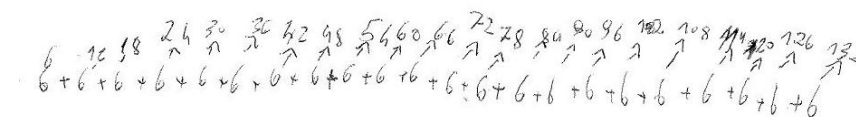 6 12 18 24 30 36 42 48 54 60 66 72 78 84 90 96 102 108 114 120 126
6 + 6 + 6 + 6 + 6 + 6 + 6 + 6 + 6 + 6 + 6 + 6 + 6 + 6 + 6 + 6 + 6 + 6 + 6 + 6 + 6 + 6